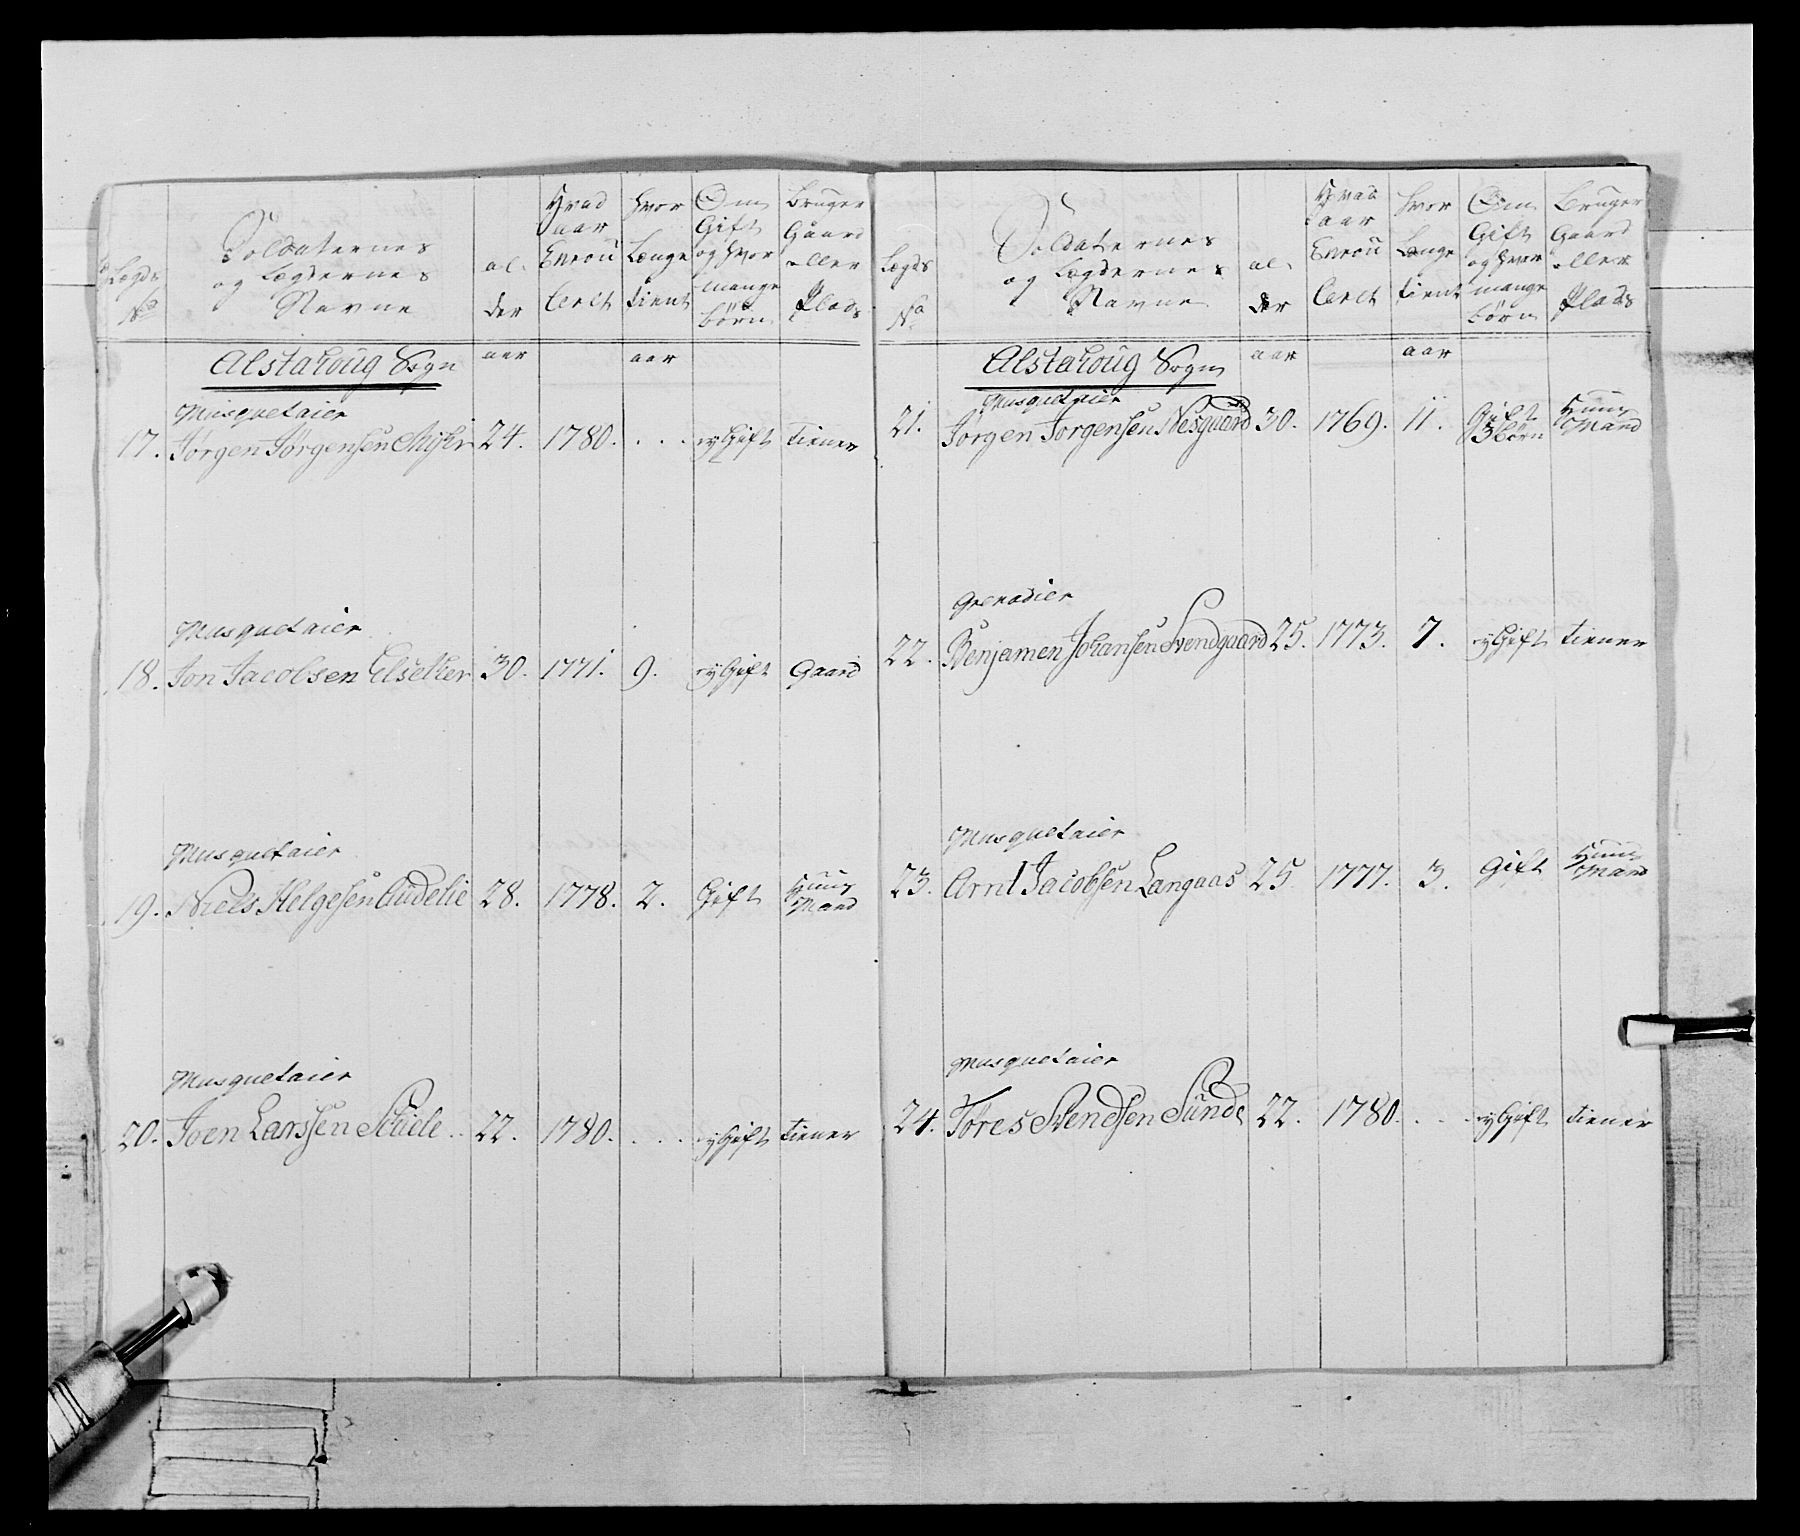 Lægds No | Soldaternes og Lægdernes Navne | alder | Hvad aar Enroulleret | Hvor Længe tient | Om Gift og hvor mange børn | Bruger Gaard eller Plads
Alstahoug Sogn | aar | aar
Musquetaier
17. Jørgen Jørgensen | 24. | 1780. | . . . | ey Gift | tiener
Musquetaier
18. Jon Jacobsen Elsether | 30. | 1771. | 9. | ey Gift | Gaard
Musquetaier
19. Niels Helgesen Audelie | 28. | 1778. | 2. | Gift | Huus Mand
Musquetaier
20. Joen Larssen | 22. | 1780. | . . . | ey Gift | tiener
Lægds No | Soldaternes og Lægdernes Navne | alder | Hvad aar Enroulleret | Hvor Længe tient | Om Gift og hvor mange børn | Bruger Gaard eller Plads
Alstahoug Sogn | aar | aar
Musquetaier
21. Jørgen Jørgensen Nesgaard | 30. | 1769. | 11. | Gift 3 børn | Huus Mand
Grenadier
22. Benjamen Johansen Svendgaard | 25. | 1773. | 7. | ey Gift | tiener
Musquetaier
23. Arnt Jacobsen Langaas | 25 | 1777. | 3. | Gift | Huus Mand
Musquetaier
24. Tores Svendsen Sunde | 22. | 1780. | . . . | ey Gift | tiener